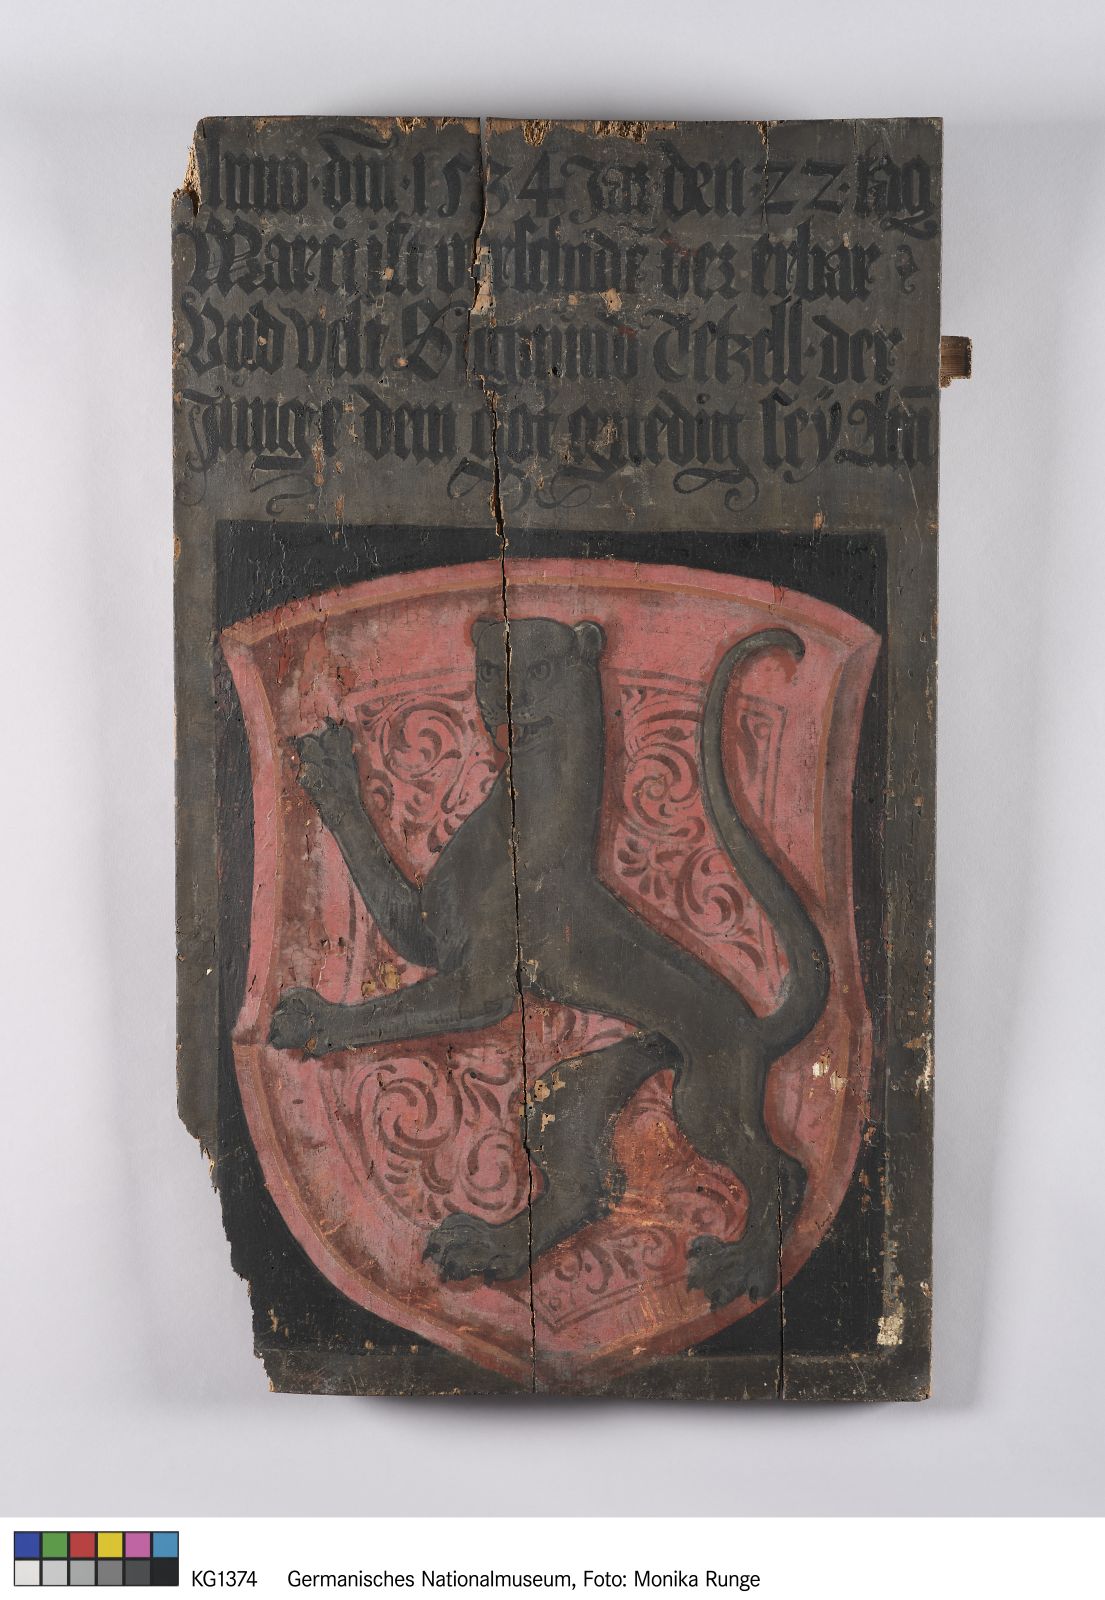 Anno · dm̄ · 1534 Jar den · 22 · tag
Marci ist verschiden der erbar
Vnd vest Sigmund Tetzell · der
Junger dem got genedig sey Am̄
KG1374 Germanisches Nationalmuseum, Foto: Monika Runge